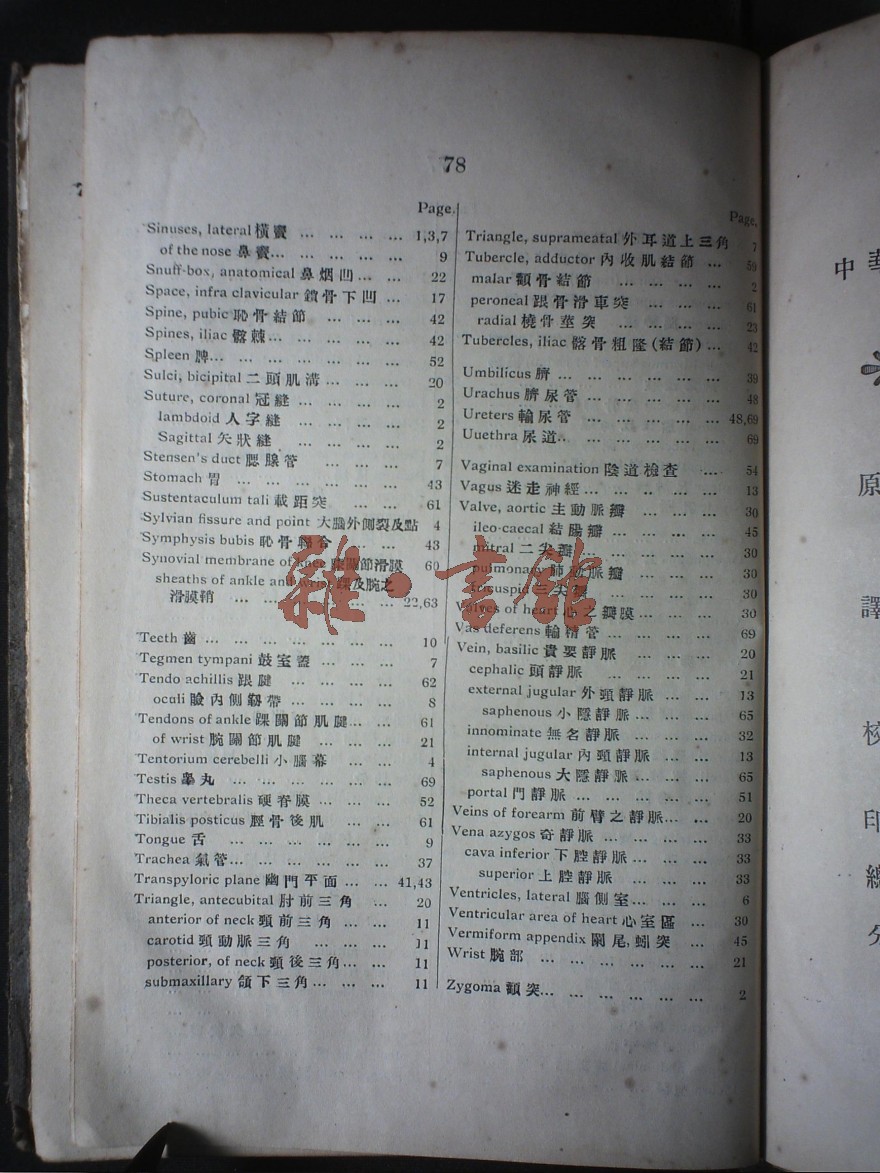 78
Page.
Sinuses, lateral 橫竇 ... ... ... ... 1,3,7
of the nose 鼻竇... ... ... ... ... 9
Snuff-box, anatomical 鼻烟凹... ... 22
Space, infra clavicular 鎖骨下凹 ... 17
Spine, pubic 恥骨結節 ... ... ... 42
Spines, iliac 髂棘... ... ... ... ... 42
Spleen 脾... ... ... ... ... ... 52
Sulci, bicipital 二頭肌溝 ... ... ... 20
Suture, coronal 冠縫 ... ... ... ... 2
lambdoid 人字縫 ... ... ... ... 2
Sagittal 矢狀縫 ... ... ... ... 2
Stensen's duct 腮腺管 ... ... ... 7
Stomach 胃 ... ... ... ... ... 43
Sustentaculum tali 載距突 ... ... 61
Sylvian fissure and point 大腦外側裂及點 4
Symphysis bubis 恥骨聯合 ... ... 43
Synovial membrane of knee 關節滑膜 60
sheaths of ankle and wrist 踝及腕之
滑膜鞘 ... ... ... ... ... 22,63
Teeth 齒 ... ... ... ... ... ... 10
Tegmen tympani 鼓室蓋 ... ... ... 7
Tendo achillis 跟腱 ... ... ... ... 62
oculi 瞼內側韌帶 ... ... ... ... 8
Tendons of ankle 踝關節肌腱... ... 61
of wrist 腕關節肌腱 ... ... ... 21
Tentorium cerebelli 小腦幕 ... ... 4
Testis 睾丸 ... ... ... ... ... 69
Theca vertebralis 硬脊膜 ... ... ... 52
Tibialis posticus 脛骨後肌 ... ... 61
Tongue 舌 ... ... ... ... ... 9
Trachea 氣管... ... ... ... ... ... 37
Transpyloric plane 幽門平面 ... ... 41,43
Triangle, antecubital 肘前三角 ... 20
anterior of neck 頸前三角 ... ... 11
carotid 頸動脈三角 ... ... ... 11
posterior, of neck 頸後三角... ... 11
submaxillary 頜下三角 ... ... ... 11
Page,
Triangle, suprameatal 外耳道上三角 7
Tubercle, adductor 內收肌結節 ... 59
malar 顴骨結節 ... ... ... ... 2
peroneal 跟骨滑車突 ... ... ... 61
radial 橈骨莖突 ... ... ... ... 23
Tubercles, iliac 髂骨粗隆(結節) ... 42
Umbilicus 臍 ... ... ... ... ... 39
Urachus 臍尿管 ... ... ... ... 48
Ureters 輸尿管 ... ... ... ... 48,69
Uuethra 尿道.. ... ... ... ... ... 69
Vaginal examination 陰道檢查 ... 54
Vagus 迷走神經... ... .. ... ... 13
Valve, aortic 主動脈瓣 ... ... ... 30
ileo-caecal 結腸瓣 ... ... ... 45
mitral 二尖瓣... ... ... ... ... 30
pulmonary 肺動脈瓣 ... ... ... 30
tricuspid 三尖瓣 ... ... ... 30
Valves of heart 心之瓣膜... ... ... 30
Vas deferens 輸精管 ... ... ... ... 69
Vein, basilic 貴要靜脈 ... ... ... 20
cephalic 頭靜脈 ... ... ... ... 21
external jugular 外頸靜脈 ... ... 13
saphenous 小隱靜脈... ... ... 65
innominate 無名靜脈 ... ... ... 32
internal jugular 內頸靜脈 ... ... 13
saphenous 大隱靜脈... ... ... 65
portal 門靜脈 ... ... ... ... ... 51
Veins of forearm 前臂之靜脈... ... 20
Vena azygos 奇靜脈 ... ... ... ... 33
cava inferior 下腔靜脈 ... ... ... 33
superior 上腔靜脈 ... ... ... 33
Ventricles, lateral 腦側室... ... ... 6
Ventricular area of heart 心室區 ... 30
Vermiform appendix 闌尾,蚓突 ... 45
Wrist 腕部 ... ... ... ... ... ... 21
Zygoma 顴突... ... ... ... ... ... 2
中華
原
譯
校
印
總
雜·書館